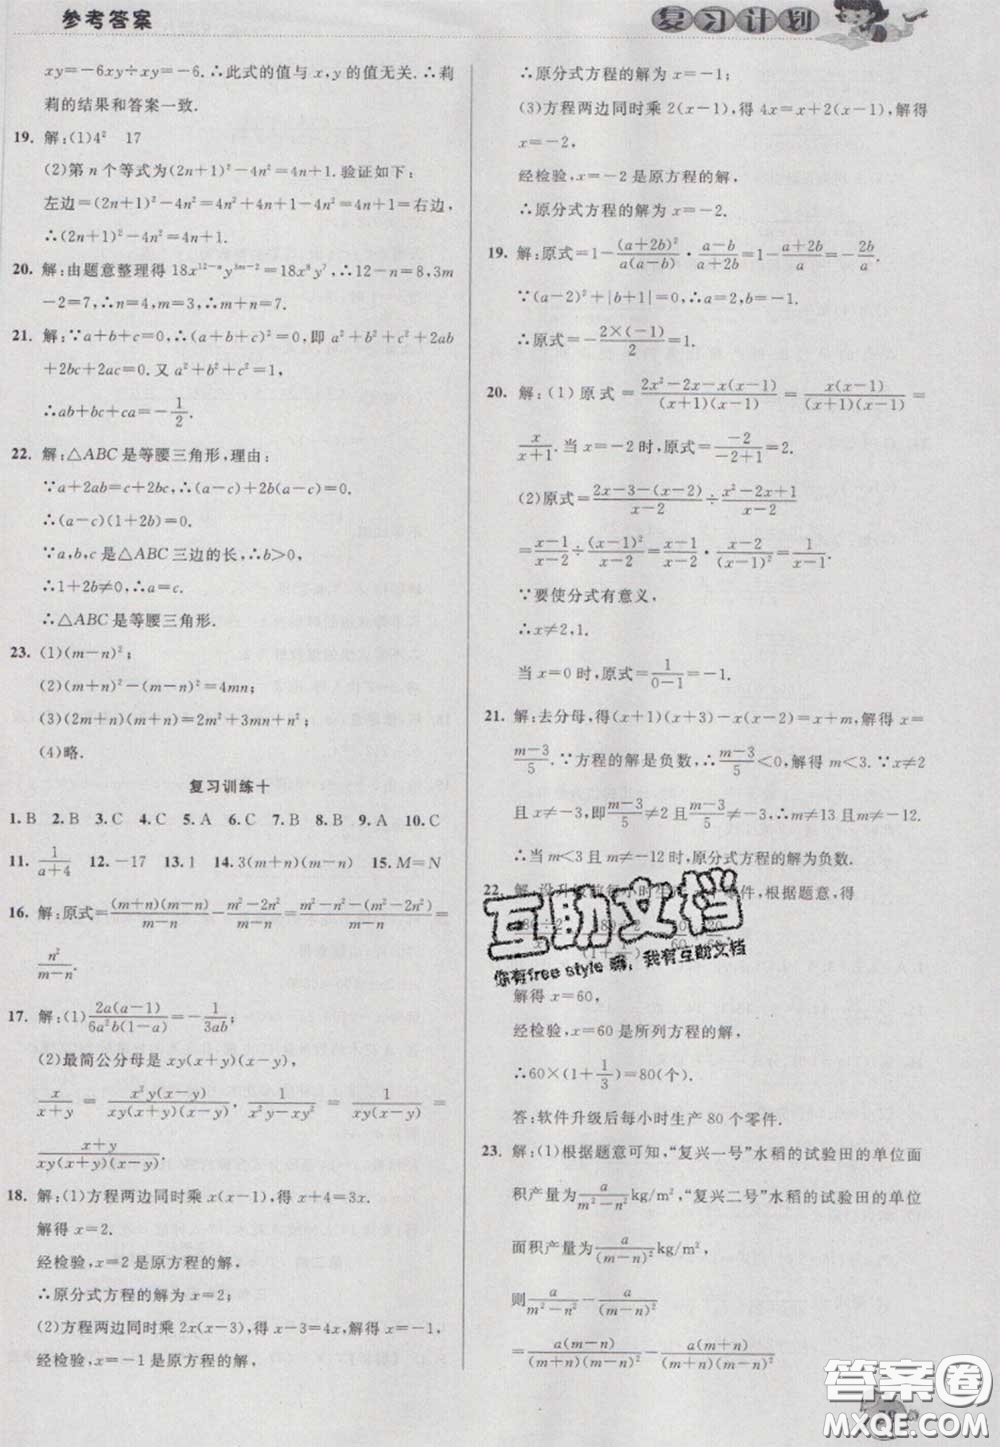 参考答案
复习计划
xy=-6xy÷xy=-6.∴此式的值与x,y的值无关.∴莉
莉的结果和答案一致.
19. 解:(1)4² 17
(2)第n个等式为(2n+1)²-4n²=4n+1.验证如下:
左边=(2n+1)²-4n²=4n²+4n+1-4n²=4n+1=右边,
∴(2n+1)²-4n²=4n+1.
20. 解:由题意整理得18x^{12-n}y^{3m-2}=18x⁸y⁷,∴12-n=8,3m
-2=7,∴n=4,m=3,∴m+n=7.
21. 解:∵a+b+c=0,∴(a+b+c)²=0,即a²+b²+c²+2ab
+2bc+2ac=0.又a²+b²+c²=1,
∴ab+bc+ca=-1/2.
22. 解:△ABC是等腰三角形,理由:
∵a+2ab=c+2bc,∴(a-c)+2b(a-c)=0.
∴(a-c)(1+2b)=0.
∵a,b,c是△ABC三边的长,∴b>0,
∴1+2b≠0,∴a=c.
∴△ABC是等腰三角形.
23. (1)(m-n)²;
(2)(m+n)²-(m-n)²=4mn;
(3)(2m+n)(m+n)=2m²+3mn+n²;
(4)略.
复习训练十
1.B 2.B 3.C 4.C 5.A 6.C 7.B 8.B 9.A 10.C
11. 1/(a+4) 12.-17 13.1 14.3(m+n)(m-n) 15.M=N
16. 解:原式=(m+n)(m-n)/(m-n)-(m²-2n²)/(m-n)=(m²-n²-(m²-2n²))/(m-n)=
n²/(m-n).
17. 解:(1)2a(a-1)/(6a²b(1-a))=-1/(3ab);
(2)最简公分母是xy(x+y)(x-y),
x/(x+y)=x²y(x-y)/(xy(x+y)(x-y)). 1/(x²y-xy²)=1/(xy(x-y))=
(x+y)/(xy(x+y)(x-y)).
18. 解:(1)方程两边同时乘x(x-1),得x+4=3x.
解得x=2.
经检验,x=2是原方程的解,
∴原分式方程的解为x=2;
(2)方程两边同时乘2x(x-3),得x-3=4x,解得x=-1,
经检验,x=-1是原方程的解,
∴原分式方程的解为x=-1;
(3)方程两边同时乘2(x-1),得4x=x+2(x-1),解得
x=-2.
经检验,x=-2是原方程的解,
∴原分式方程的解为x=-2.
19. 解:原式=1-(a+2b)²/(a(a-b))·(a-b)/(a+2b)=1-(a+2b)/a=-2b/a.
∵(a-2)²+|b+1|=0,∴a=2,b=-1.
∴原式=-2×(-1)/2=1.
20. 解:(1)原式=(2x²-2x-x(x-1))/((x+1)(x-1))=x(x-1)/((x+1)(x-1))=
x/(x+1).当x=-2时,原式=-2/(-2+1)=2.
(2)原式=(2x-3-(x-2))/(x-2)÷(x²-2x+1)/(x-2)
=(x-1)/(x-2)÷(x-1)²/(x-2)=(x-1)/(x-2)·(x-2)/(x-1)²=1/(x-1).
∵要使分式有意义,
∴x≠2,1.
当x=0时,原式=1/(0-1)=-1.
21. 解:去分母,得(x+1)(x+3)-x(x-2)=x+m,解得x=
(m-3)/5.∵方程的解是负数,∴(m-3)/5<0.解得m<3.∵x≠2
且x≠-3,即(m-3)/5≠2且(m-3)/5≠-3,∴m≠13且m≠-12.
∴当m<3且m≠-12时,原分式方程的解为负数.
22. 解:设升级前每小时生产x个零件,根据题意,得
互助文档
你有free style嘛,我有互助文档
解得x=60,
经检验,x=60是所列方程的解,
∴60×(1+1/3)=80(个).
答:软件升级后每小时生产80个零件.
23. 解:(1)根据题意可知,“复兴一号”水稻的试验田的单位面
积产量为a/(m²-n²)kg/m²,“复兴二号”水稻的试验田的单位
面积产量为a/(m-n)²kg/m²,
则a/(m²-n²)-a/(m-n)²
=a(m-n)/((m+n)(m-n)²)-a(m+n)/((m+n)(m-n)²)
答案圈
MXQE.COM